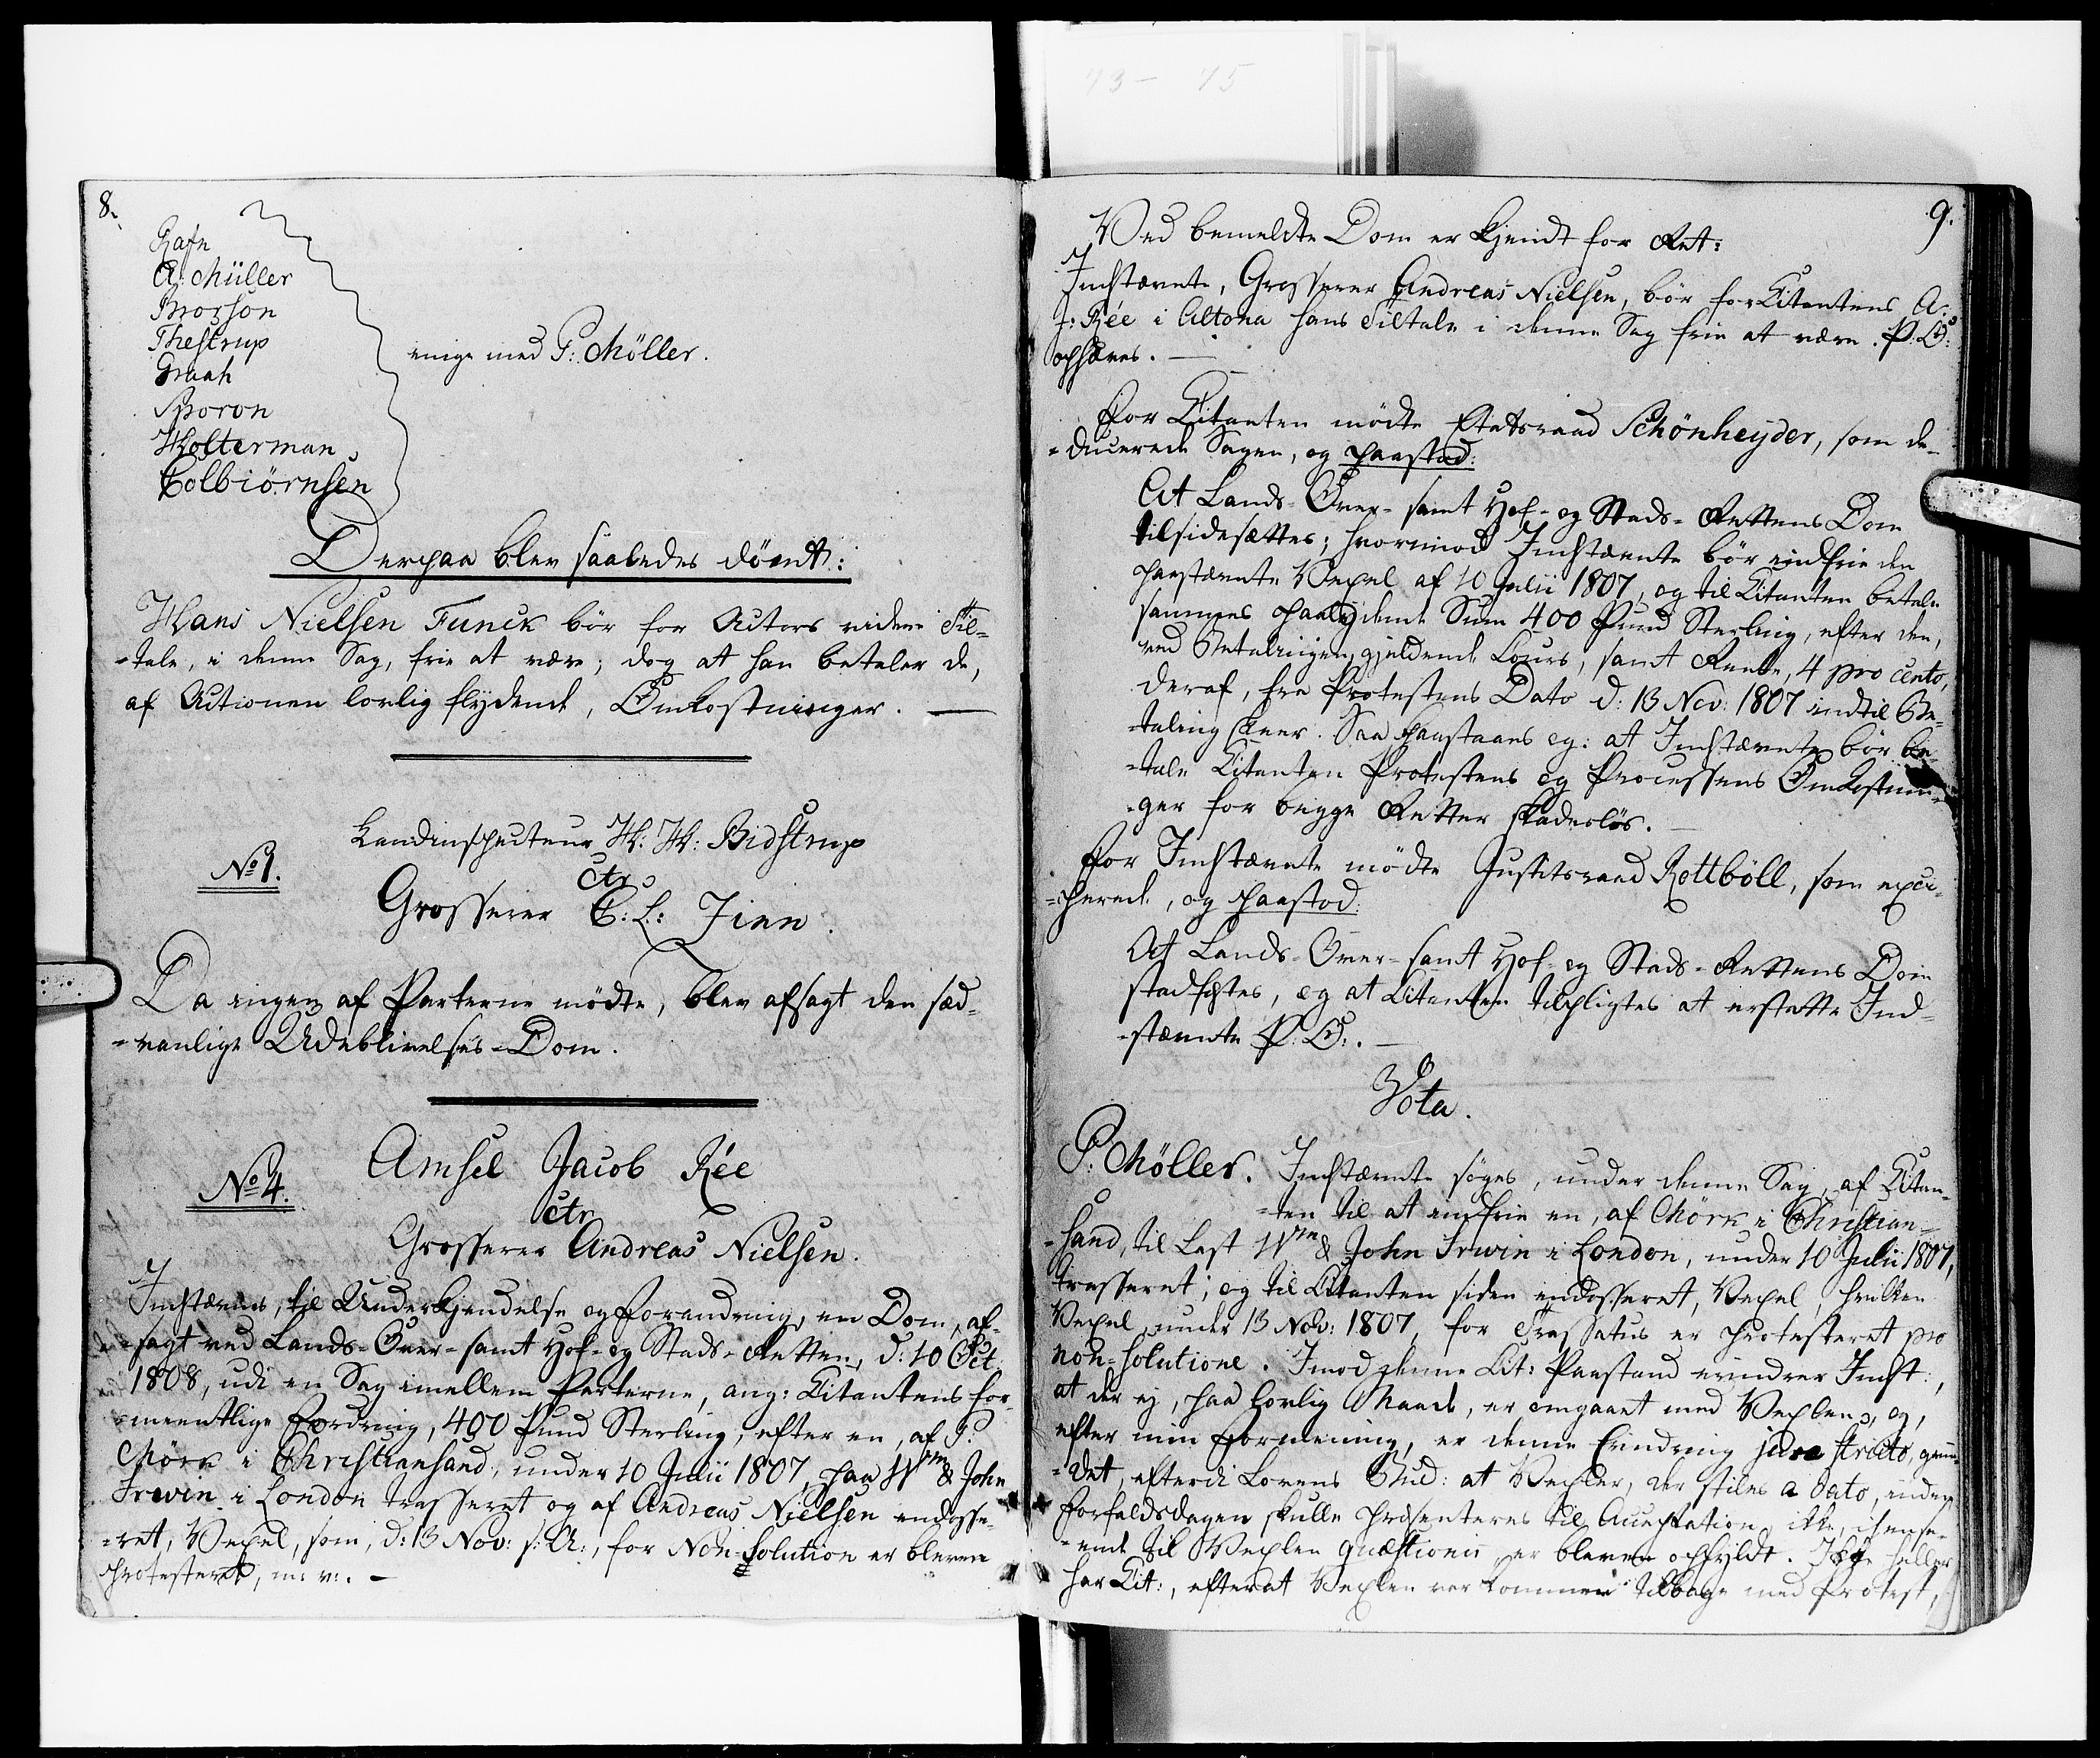 8.
Rafn
A: Müller
Brorson
Thestrup
Graah
Sporon
Wolterman
Colbiörnsen
enige med P: Möller.
Derpaa blev saaledes dömt:
Hans Nielsen Funck bör for Actors videre Til-
-tale, i denne Sag, frie at være; dog at han betaler de,
af Actionen lovlig flydende, Omkostninger. —
No 1.
Landinspecteur H: H: Bidstrup
ctr
Grosserer C: L: Zinn.
Da ingen af Parterne mödte, blev afsagt den sæd-
-vanlige Udeblivelses-Dom.
No 4.
Amsel Jacob Rée
ctr
Grosserer Andreas Nielsen.
Indstævnes, til Underkjendelse og Forandring, en Dom, af-
-sagt ved Lands-Over- samt Hof- og Stads-Retten, d: 10 Oct:
1808, udi en Sag imellem Parterne, ang: Citantens for-
-meentlige Fordring, 400 Pund Sterling, efter en, af P:
Mörk i Christiansand, under 10 Julii 1807, paa Wm & John
Irwin i London trasseret og af Andreas Nielsen endosse-
-ret, Vexel, som, d: 13 Nov: s: A:, for Non-Solution er bleven
protesteret, m: v:. —
73 - 75
9.
Ved bemeldte Dom er kjendt for Ret:
Indstævnte, Grosserer Andreas Nielsen, bör for Citantens A:
J: Rée i Altona hans Tiltale i denne Sag frie at være. P: O:
ophæves. —
For Citanten mödte Etatsraad Schönheyder, som de-
-ducerede Sagen, og paastod:
At Lands-Over- samt Hof- og Stads-Rettens Dom
tilsidesættes; hvorimod Indstævnte bör indfrie den
paastævnte Vexel af 10 Julii 1807, og til Citanten betale
sammes paalydende Sum 400 Pund Sterling, efter den,
ved Betalingen, gjeldende Cours, samt Rente, 4 pro cento,
deraf, fra Protestens Dato d: 13 Nov: 1807 indtil Be-
-taling skeer. Saa paastaaes og: at Indstævnte bör be-
-tale Citanten Protestens og Processens Omkostnin-
-ger for begge Retter skadeslös. —
For Indstævnte mödte Justitsraad Rottböll, som exci-
-perede, og paastod:
At Lands-Over- samt Hof- og Stads-Rettens Dom
stadfæstes, og at Citanten tilpligtes at erstatte Ind-
-stævnte P: O:. —
Vota.
P: Möller. Indstævnte söges, under denne Sag, af Citan-
-ten til at indfrie en, af Mörk i Christian-
-sand, til Last Wm & John Irwin i London, under 10 Julii 1807,
trasseret; og til Citanten siden endosseret, Vexel, hvilken
Vexel, under 13 Nov: 1807, for Trassatus er protesteret pro
non-solutione. Imod denne Cit: Paastand erindrer Indst:,
at der ej, paa lovlig Maade, er omgaaet med Vexlen, og,
efter min Formening, er denne Erindring jure stricto, grun-
-det, efterdi Lovens Bud: at Vexler, der stiles a dato, inden
Forfaldsdagen skulle præsenteres til Acceptation, ikke, i hense-
-ende til Vexlen quæstionis, er bleven opfyldt. Ikke heller
har Cit:, efterat Vexlen var kommen tilbage med Protest,